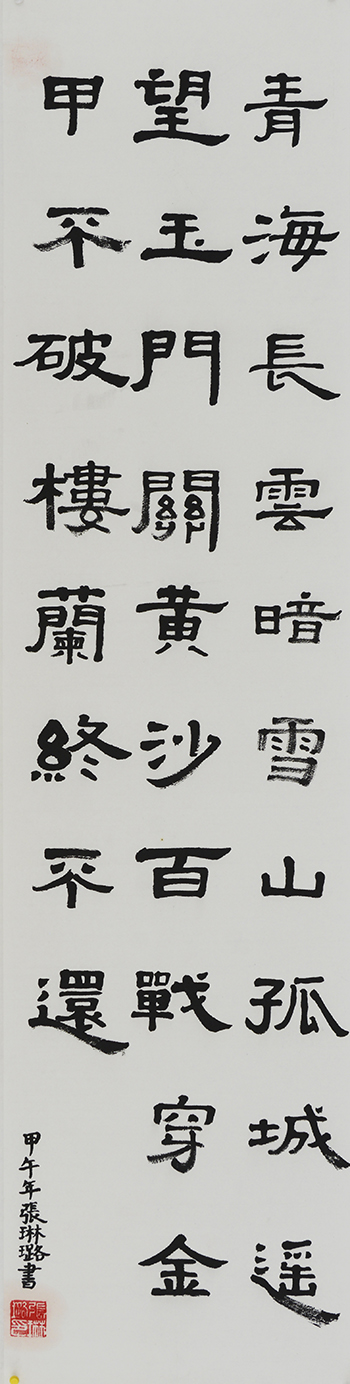 青海長雲暗雪山孤城遥
望玉門關黄沙百戰穿金
甲不破樓蘭終不還
甲午年張琳璐書
張琳璐印